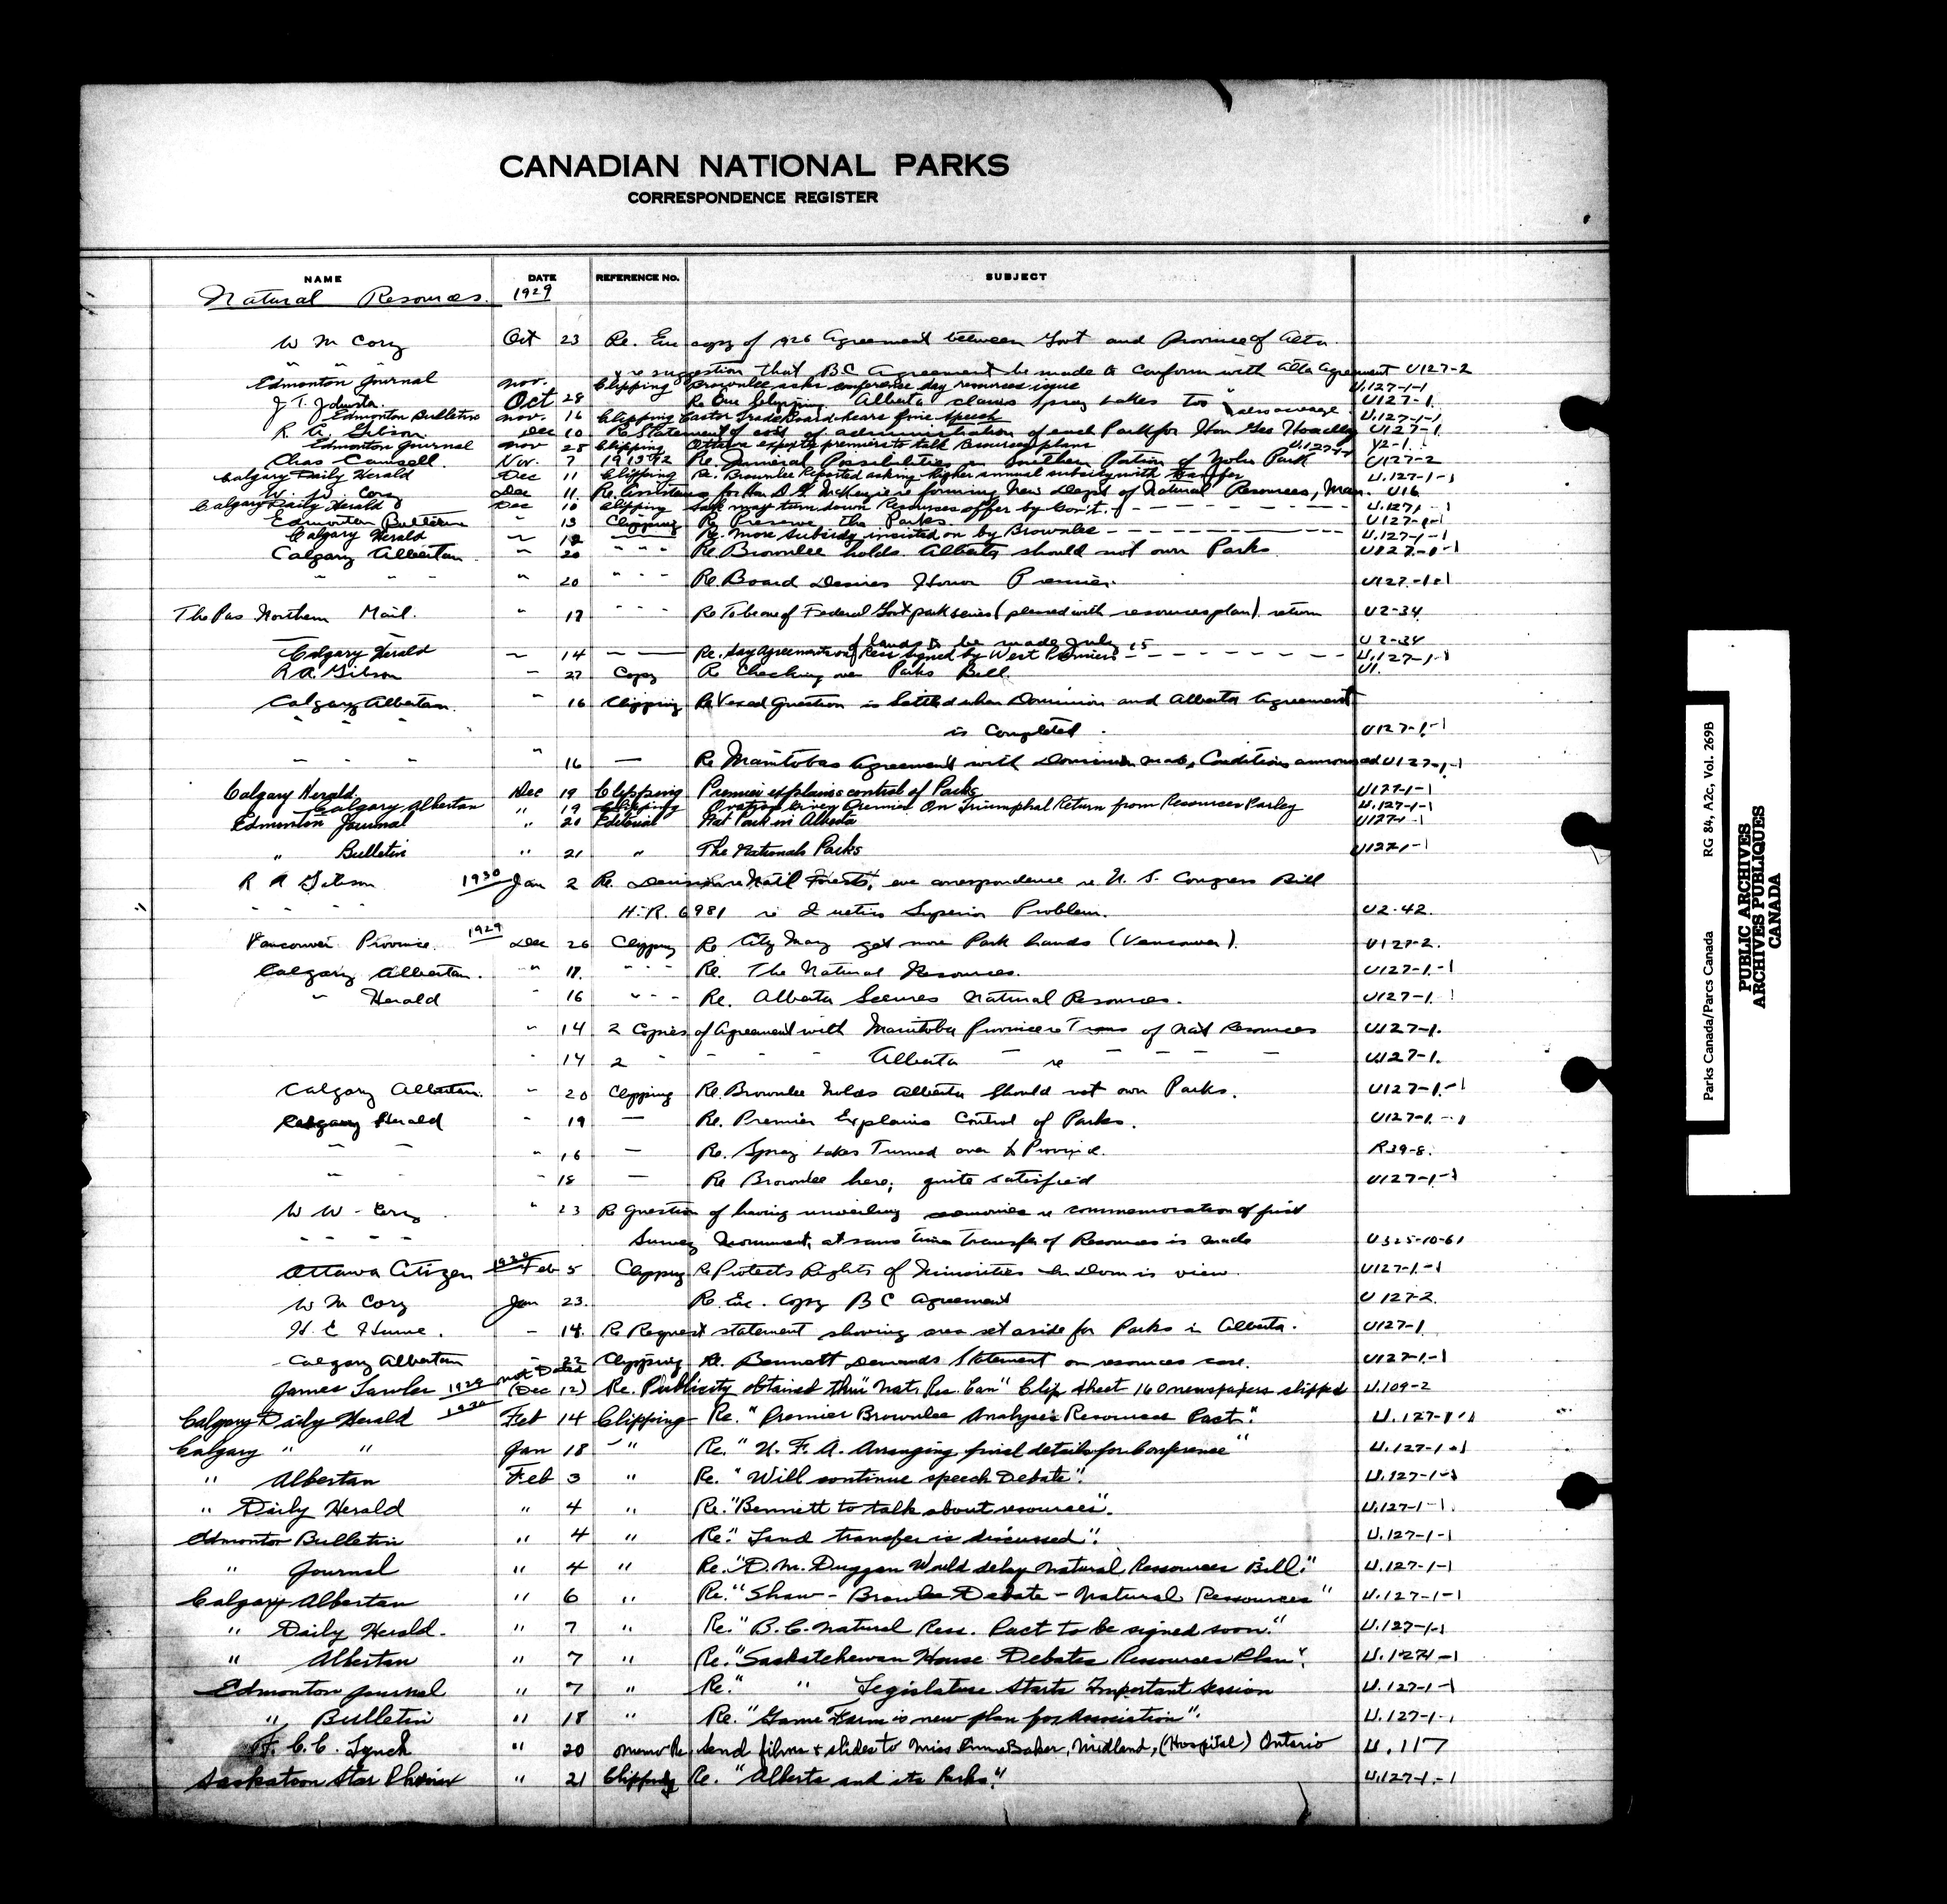 CANADIAN NATIONAL PARKS
CORRESPONDENCE REGISTER
NAME DATE REFERENCE No. SUBJECT
Natural Resources. 1929
W M Cory Oct 23 Re. Enc copy of 1926 Agreement between Govt and Province of Alta.
" " " re suggestion that BC Agreement be made to conform with Alta Agreement U127-2
Edmonton Journal Nov. Clipping Brownlee asks conference day resources U.127-1-1
J. T. Oct 28 Re Enc Clipping Alberta claims Spray Lakes too U127-1
Edmonton Bulletin Nov. 16 Clipping Castor Trade Board hears fine speech U.127-1-1
R A Gibson Dec 10 Re Statement of cost of administration of each Park for Hon Geo Hoadley U127-1
Edmonton Journal Nov 28 Clipping Ottawa expects premiers to talk Resources plans U.127-1-1 Y2-1.
Chas Camsell. Nov. 7 Re. Mineral Possibilities in Southern Portion of Yoho Park U127-2
Calgary Daily Herald Dec 11 Clipping Re. Brownlee Reported asking higher annual subsidy with transfer U.127-1-1
W. W. Cory Dec 11. Re. for Hon D. G. McKenzie re forming New Dept of Natural Resources, Man. U16
Calgary Daily Herald Dec 10 Clipping Sask may turn down Resources offer by Gov't. U.127,
Edmonton Bulletin " 13 Clipping Re Preserve the Parks. U127-1-1
Calgary Herald " 12 Re. More subsidy insisted on by Brownlee U.127-1-1
Calgary Albertan " 20 " " " Re Brownlee holds Alberta should not own Parks. U127-1-1
" " " " 20 " " " Re. Board Desires Honor Premier. U127-1-1
The Pas Northern Mail. " 17 " " " Re To be one of Federal Govt park series (pleased with resources plan) return U2-34
of lands to be made July 15 U2-34
Calgary Herald " 14 Re. Day Agreements of Ress signed by West Premiers U.127-1-1
R A. Gibson " 27 Copy Re Checking over Parks Bill. U1.
Calgary Albertan. " 16 Clipping Re Vexed Question is Settled when Dominion and Alberta Agreement
is Completed. U127-1-1
" " " " 16 — Re Manitobas Agreement with Dominion made, Conditions announced U127-1-1
Calgary Herald. Dec 19 Clipping Premier explains control of Parks U127-1-1
Calgary Albertan " 19 Clipping Ovation given Premier On Triumphal Return from Resources Parley U.127-1-1
Edmonton Journal " 20 Editorial Nat Park in Alberta U127-1-1
" Bulletin " 21 " The Nationals Parks U127-1-1
R A Gibson 1930 Jan 2 Re. Nat'l Forests, enc correspondence re U. S. Congress Bill
" " " " H.R. 6981 re Superior Problem. U2-42.
Vancouver Province. 1929 Dec 26 Clipping Re City May get more Park lands (Vancouver). U127-2.
Calgary Albertan. " 17. " " " Re. The Natural Resources. U127-1-1
" Herald " 16 " " " Re. Alberta Secures Natural Resources. U127-1-1
" 14 2 Copies of Agreement with Manitoba Province re Trans of Nat Resources U127-1.
" 14 2 " " " " Alberta " re " " " " U127-1.
Calgary Albertan. " 20 Clipping Re. Brownlee holds Alberta Should not own Parks. U127-1-1
Calgary Herald " 19 — Re. Premier Explains Control of Parks. U127-1-1
" " " 16 — Re. Spray Lakes Turned over to Province. R39-8.
" " " 18 — Re Brownlee here; quite satisfied U127-1-1
W W. Cory " 23 Re Question of having unveiling re commemoration of first
" " " " Survey Monument, at same time transfer of Resources is made U325-10-61
Ottawa Citizen 1930 Feb 5 Clipping Re Protects Rights of Minorities view. U127-1-1
W M Cory Jan 23. Re. Enc. Copy BC Agreement U127-2.
H. E Hume. " 14. Re Request statement showing area set aside for Parks in Alberta. U127-1
Calgary Albertan " 22 Clipping Re. Bennett Demands Statement on resources case. U127-1-1
James Lawler 1929 Not Dated (Dec 12) Re. Publicity obtained thru "Nat. Res. Can" Clip sheet 160 newspapers clipped U.109-2
Calgary Daily Herald 1930 Feb 14 Clipping Re. "Premier Brownlee Analyses Resources Pact." U.127-1-1
Calgary " " Jan 18 " Re. "U. F. A. Arranging final details for Conference" U.127-1-1
" Albertan Feb 3 " Re. "Will continue speech Debate". U.127-1-1
" Daily Herald " 4 " Re. "Bennett to talk about resources". U.127-1-1.
Edmonton Bulletin " 4 " Re." Land transfer is discussed". U.127-1-1
" Journal " 4 " Re. "D. M. Duggan Would delay Natural Resources Bill." U.127-1-1
Calgary Albertan " 6 " Re. "Shaw - Brownlee Debate - Natural Resources" U.127-1-1
" Daily Herald. " 7 " Re. "B. C. Natural Ress. Pact to be signed soon." U.127-1-1
" Albertan " 7 " Re. "Saskatchewan House Debates Resources Plan". U.127-1-1
Edmonton Journal " 7 " Re." " Legislature Starts Important Session U.127-1-1
" Bulletin " 18 " Re. "Game Farm is new plan for Association". U.127-1-1
F. C. C. Lynch " 20 Memo Re. send films & slides to Miss Anna Baker, Midland, (Hospital) Ontario U.117
Saskatoon Star Phoenix " 21 Clipping Re. "Alberta and its Parks." U.127-1-1
Parks Canada/Parcs Canada RG 84, A2c, Vol. 269B
PUBLIC ARCHIVES
ARCHIVES PUBLIQUES
CANADA